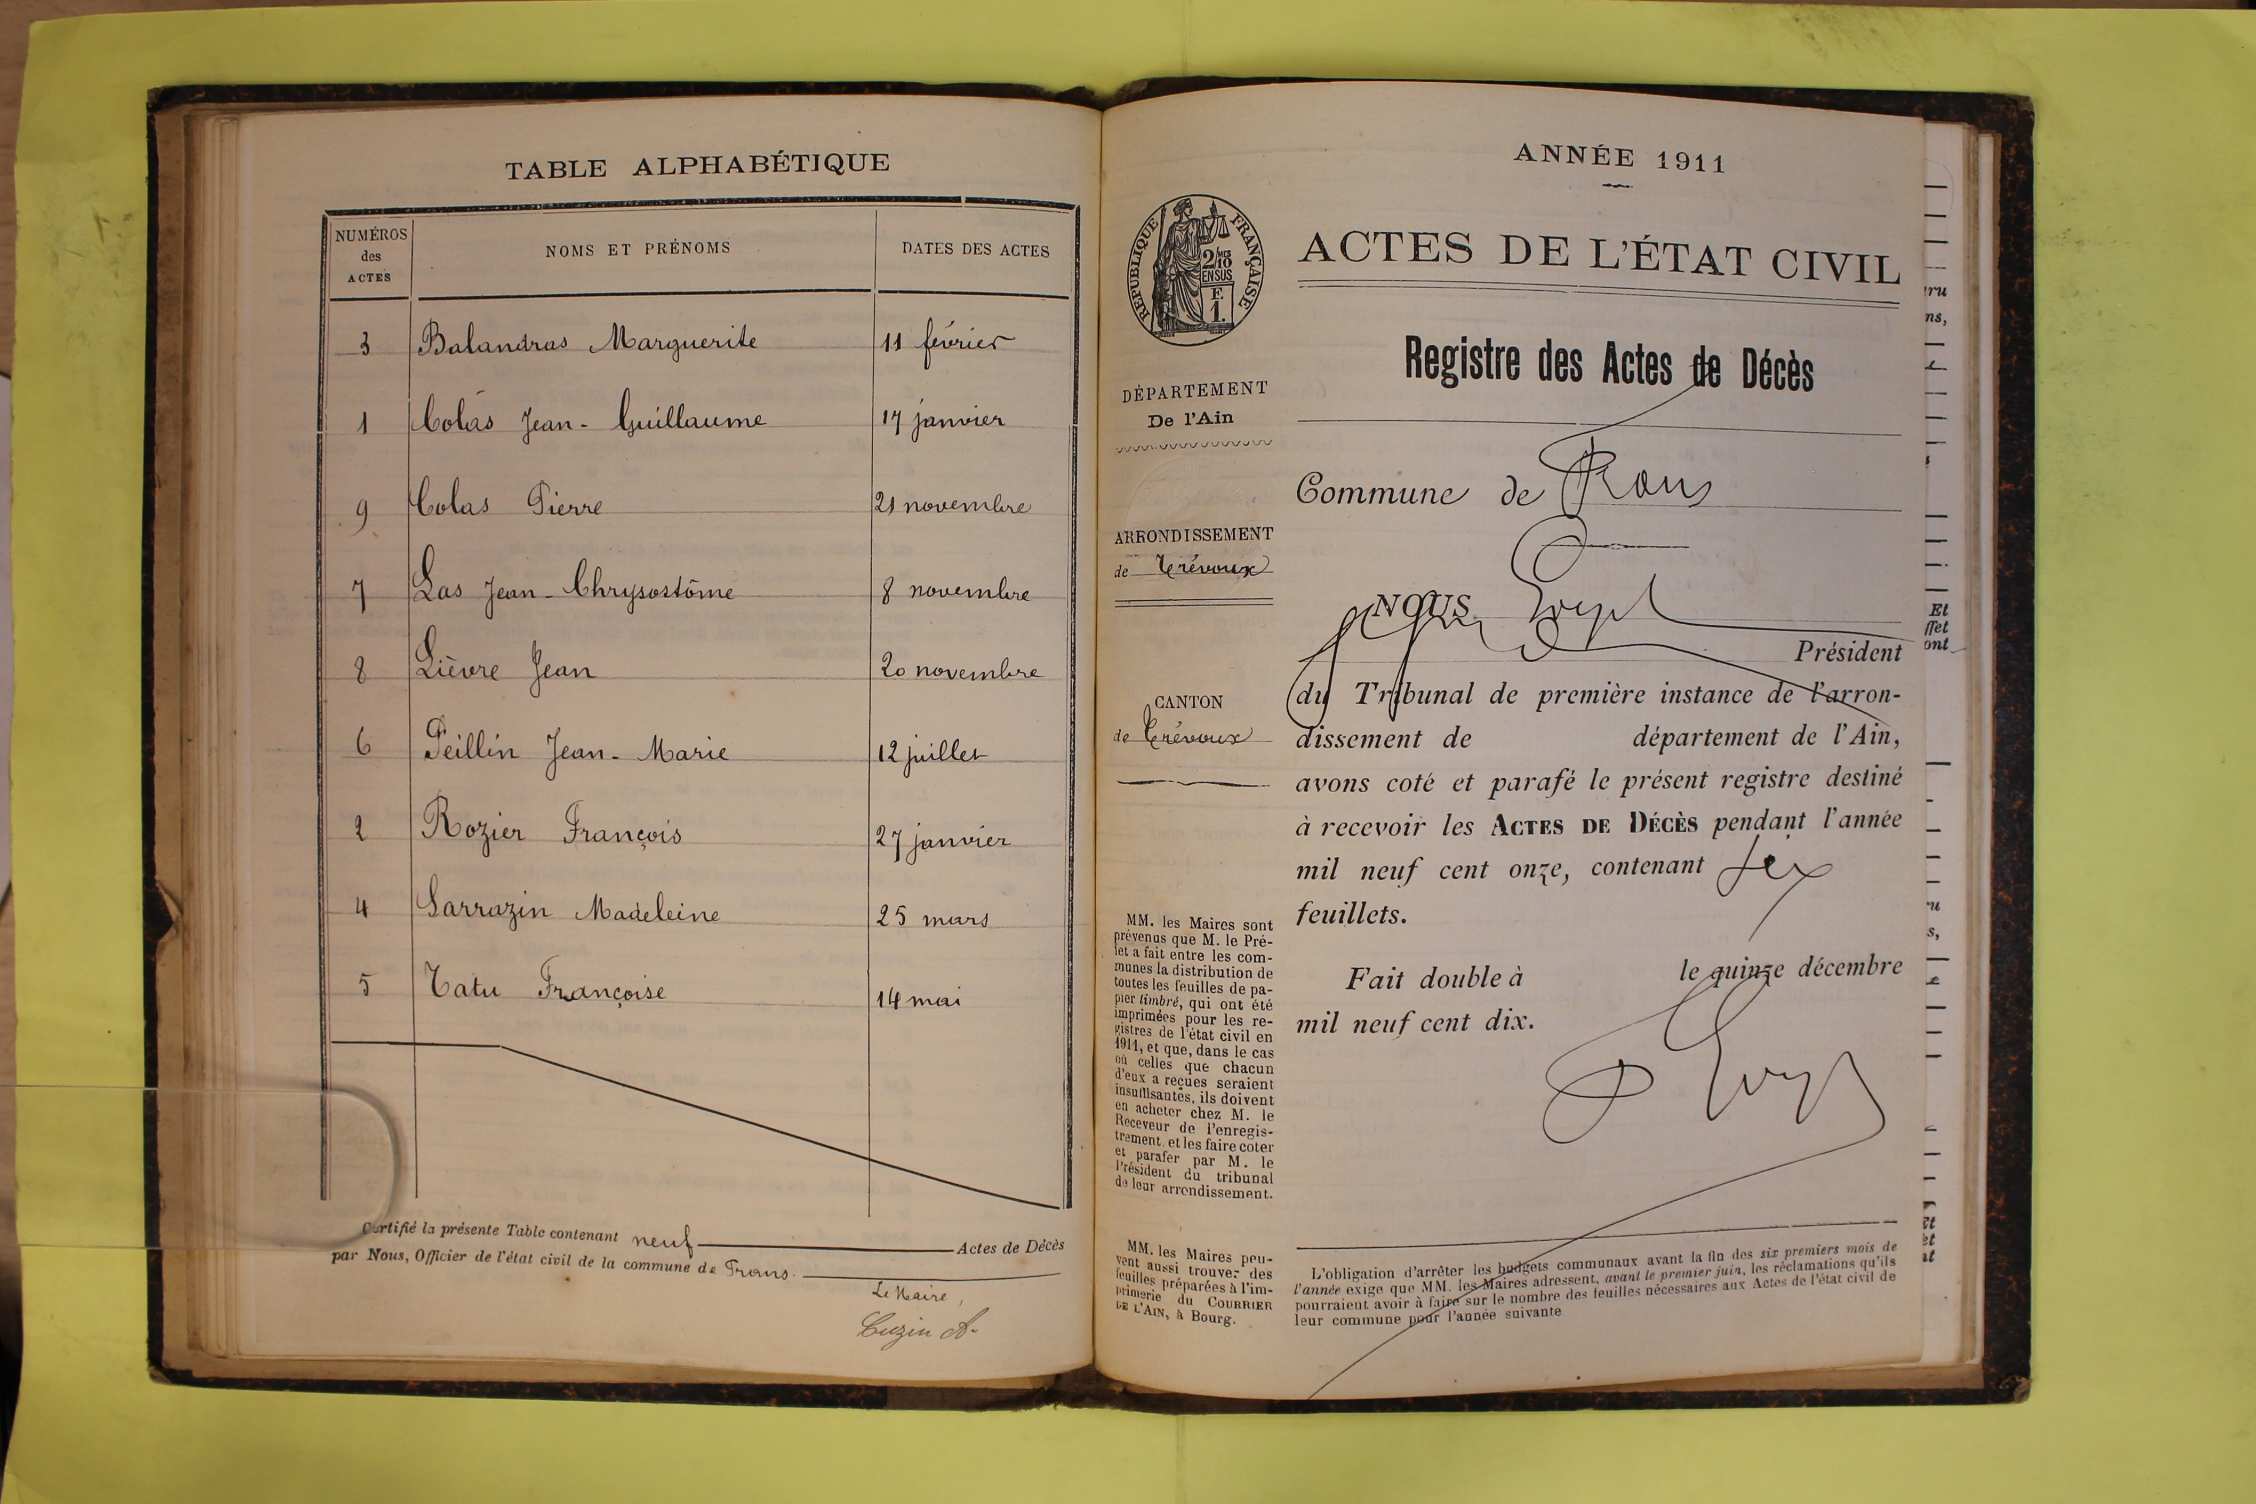 TABLE ALPHABÉTIQUE
NUMÉROS des ACTES NOMS ET PRÉNOMS DATES DES ACTES
3 Balandras Marguerite 11 février
1 Colas Jean-Guillaume 17 janvier
9 Colas Pierre 21 novembre
7 Las Jean-Chrysostôme 8 novembre
8 Lièvre Jean 20 novembre
6 Peillin Jean-Marie 12 juillet
2 Rozier François 27 janvier
4 Sarrazin Madeleine 25 mars
5 Tatu Françoise 14 mai
Certifié la présente Table contenant neuf Actes de Décès
par Nous, Officier de l'état civil de la commune de Frans.
Le Maire,
Cuzin A.
RÉPUBLIQUE FRANÇAISE
2/10 MES
EN SUS
F.
1.
DÉPARTEMENT
De l'Ain
ARRONDISSEMENT
de Trévoux
CANTON
de Trévoux
MM. les Maires sont
prévenus que M. le Pré-
fet a fait entre les com-
munes la distribution de
toutes les feuilles de pa-
pier timbré, qui ont été
imprimées pour les re-
gistres de l'état civil en
1911, et que, dans le cas
où celles que chacun
d'eux a reçues seraient
insuffisantes, ils doivent
en acheter chez M. le
Receveur de l'enregis-
trement et les faire coter
et parafer par M. le
Président du tribunal
de leur arrondissement.
MM. les Maires peu-
vent aussi trouver des
feuilles préparées à l'im-
primerie du COURRIER
DE L'AIN, à Bourg.
ANNÉE 1911
ACTES DE L'ÉTAT CIVIL
Registre des Actes de Décès
Commune de Frans
NOUS
Président
du Tribunal de première instance de l'arron-
dissement de département de l'Ain,
avons coté et parafé le présent registre destiné
à recevoir les ACTES DE DÉCÈS pendant l'année
mil neuf cent onze, contenant six
feuillets.
Fait double à le quinze décembre
mil neuf cent dix.
L'obligation d'arrêter les budgets communaux avant la fin des six premiers mois de
l'année exige que MM. les Maires adressent, avant le premier juin, les réclamations qu'ils
pourraient avoir à faire sur le nombre des feuilles nécessaires aux Actes de l'état civil de
leur commune pour l'année suivante